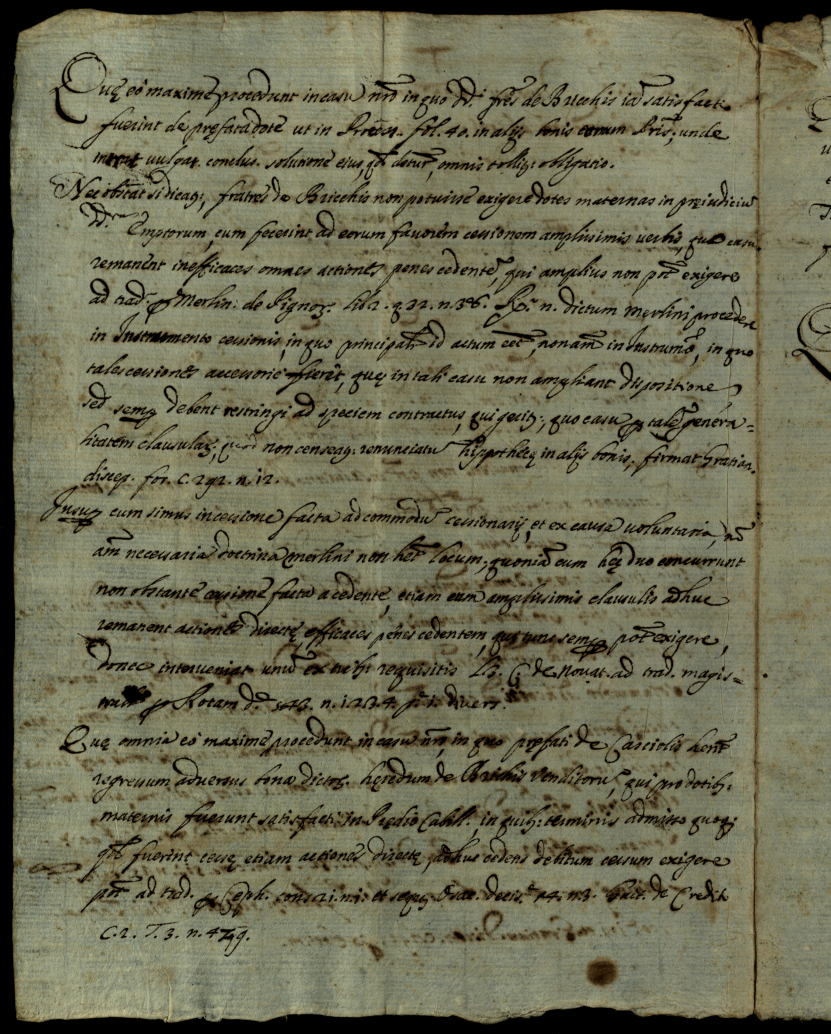 Quę eó maximé procedunt in casu nrõ in quo DD. frẽs de Bricchis iã satisfact
fuerint de prefata dote ut in fol. 40. in alijs bonis eorum Pris; unde
vulgat. conclus. solutione eius, qd detur, omnis tollit: obligatio.
Nec obstat si dicaq; fratres de Bricchis non potuisse exigere dotes maternas in pręiudiciũ
DD. Emptorum, cum fecerint ad eorum favorem cessionem amplissimis verbis, quo casu
remanent inefficaces omnes actiones penes cedente, qui amplius non põt exigere
ad trad. p Merlin. de Pignor. lib. 2. q. 32. n. 36. n. dictum merlini procedere
in Instrumento cessionis, in quo principalr id actum eet, non añt in Instrumto, in quo
tales cessiones accessorie fierẽt, quę in tali casu non ampliant dispositione
sed semp debent restringi ad speciem contractus, qui gerit; quo casu p tale genera=
litatem clausulaz, quod non censeaq; renunciatũ hippothecę in alijs bonis, firmat Gratian.
discep. for. C. 292. n. 12.
Insup cum simus in cessione facta ad commodũ cessionarij, et ex causa voluntaria, nõ
añt necessaria doctrina Merlini non het locum, quoniã cum hęc duo concurrunt
non obstante cessione facta a cedente, etiam cum amplissimis clausulis adhuc
remanent actiones directę, efficaces penes cedentem, qui tunc semp põt exigere,
donec interveniat unũ ex tribus requisitis L. 3. C. de Novat. ad trad. magis=
p Rotam d. n. 1. p. 1. divers.
Quę omnia eó maximé procedunt in casu nrõ, in quo prefati de Casciolis hent
regressum adversus bona dictoz. hęredum de Bricchis Venditorũ, qui pro dotib;
maternis fuerunt satisfacti in Predio Cabill., in quib; terminis admitto quoq;
qd fuerint cessę etiam actiones directę, adhuc cedens debitum cessum exigere
põt ad trad. p Ceph. cons. 21. n. 1. et seqq. decis. 14. n. 3. Salt. de Credit
C. 2. T. 3. n. 479.